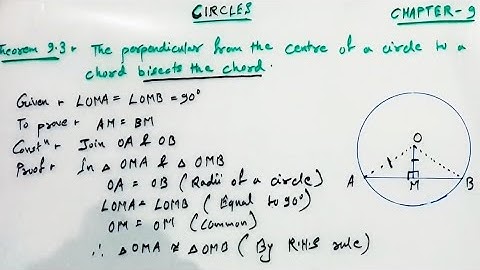 CIRCLES
CHAPTER-9
Theorem 9.3 : The perpendicular from the centre of a circle to a
chord bisects the chord.
Given : ∠OMA = ∠OMB = 90°
To prove : AM = BM
Constⁿ : Join OA & OB
Proof : In △ OMA & △ OMB
OA = OB (Radii of a circle)
∠OMA = ∠OMB (Equal to 90°)
OM = OM (Common)
∴ △ OMA ≅ △ OMB (By R.H.S rule)
O
A
M
B